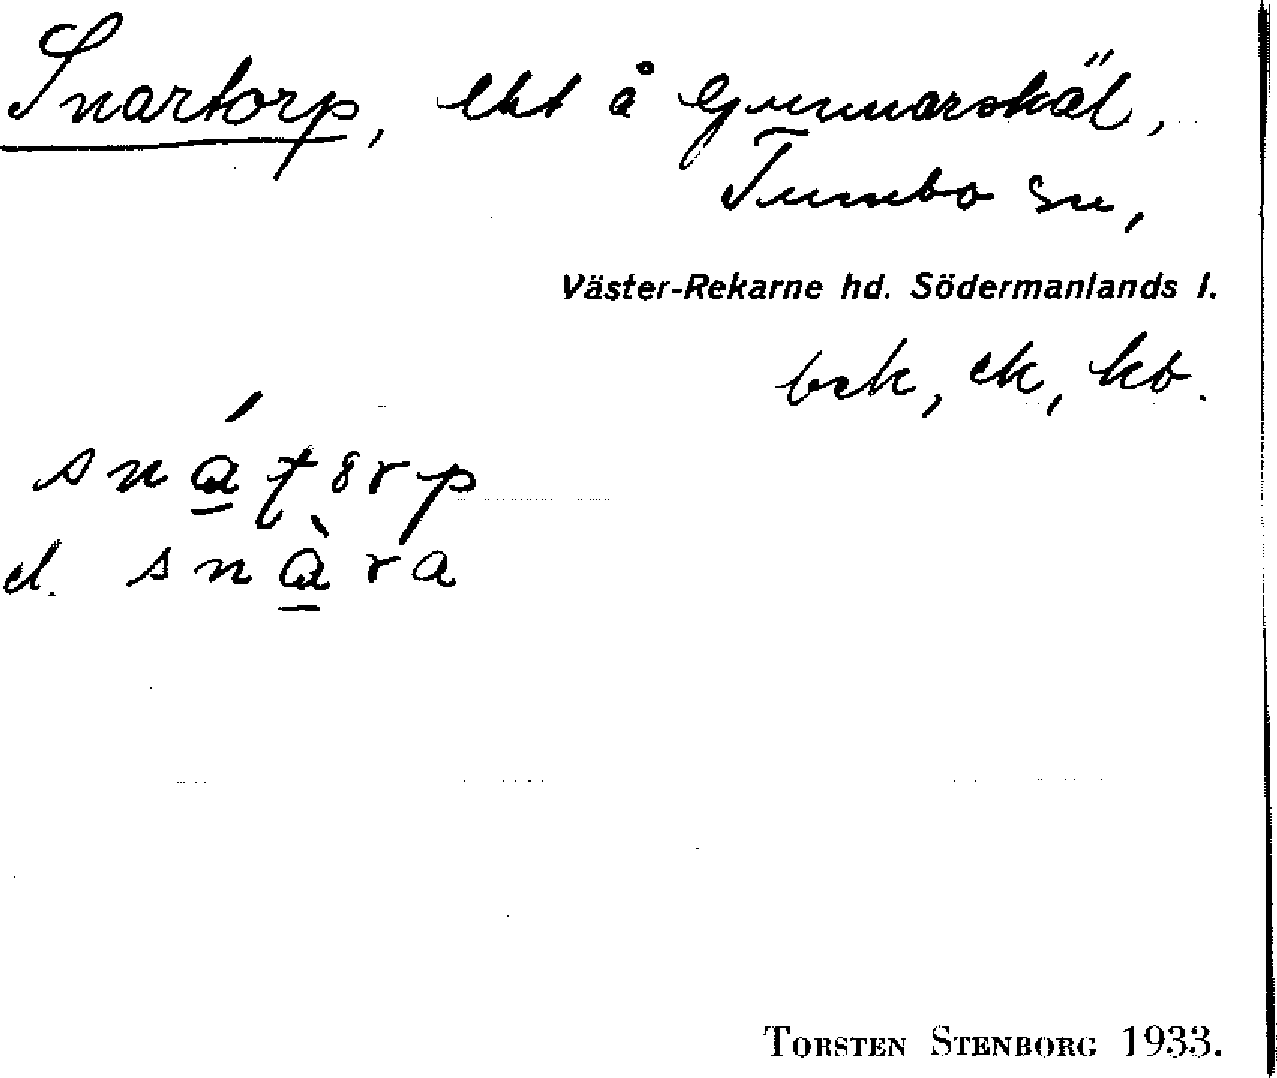 Snartorp, lht å Gunnarskäl,
Tumbo sn,
Väster-Rekarne hd. Södermanlands l.
bek, ek, kb.
snát̩orp
el. snàra
TORSTEN STENBORG 1933.